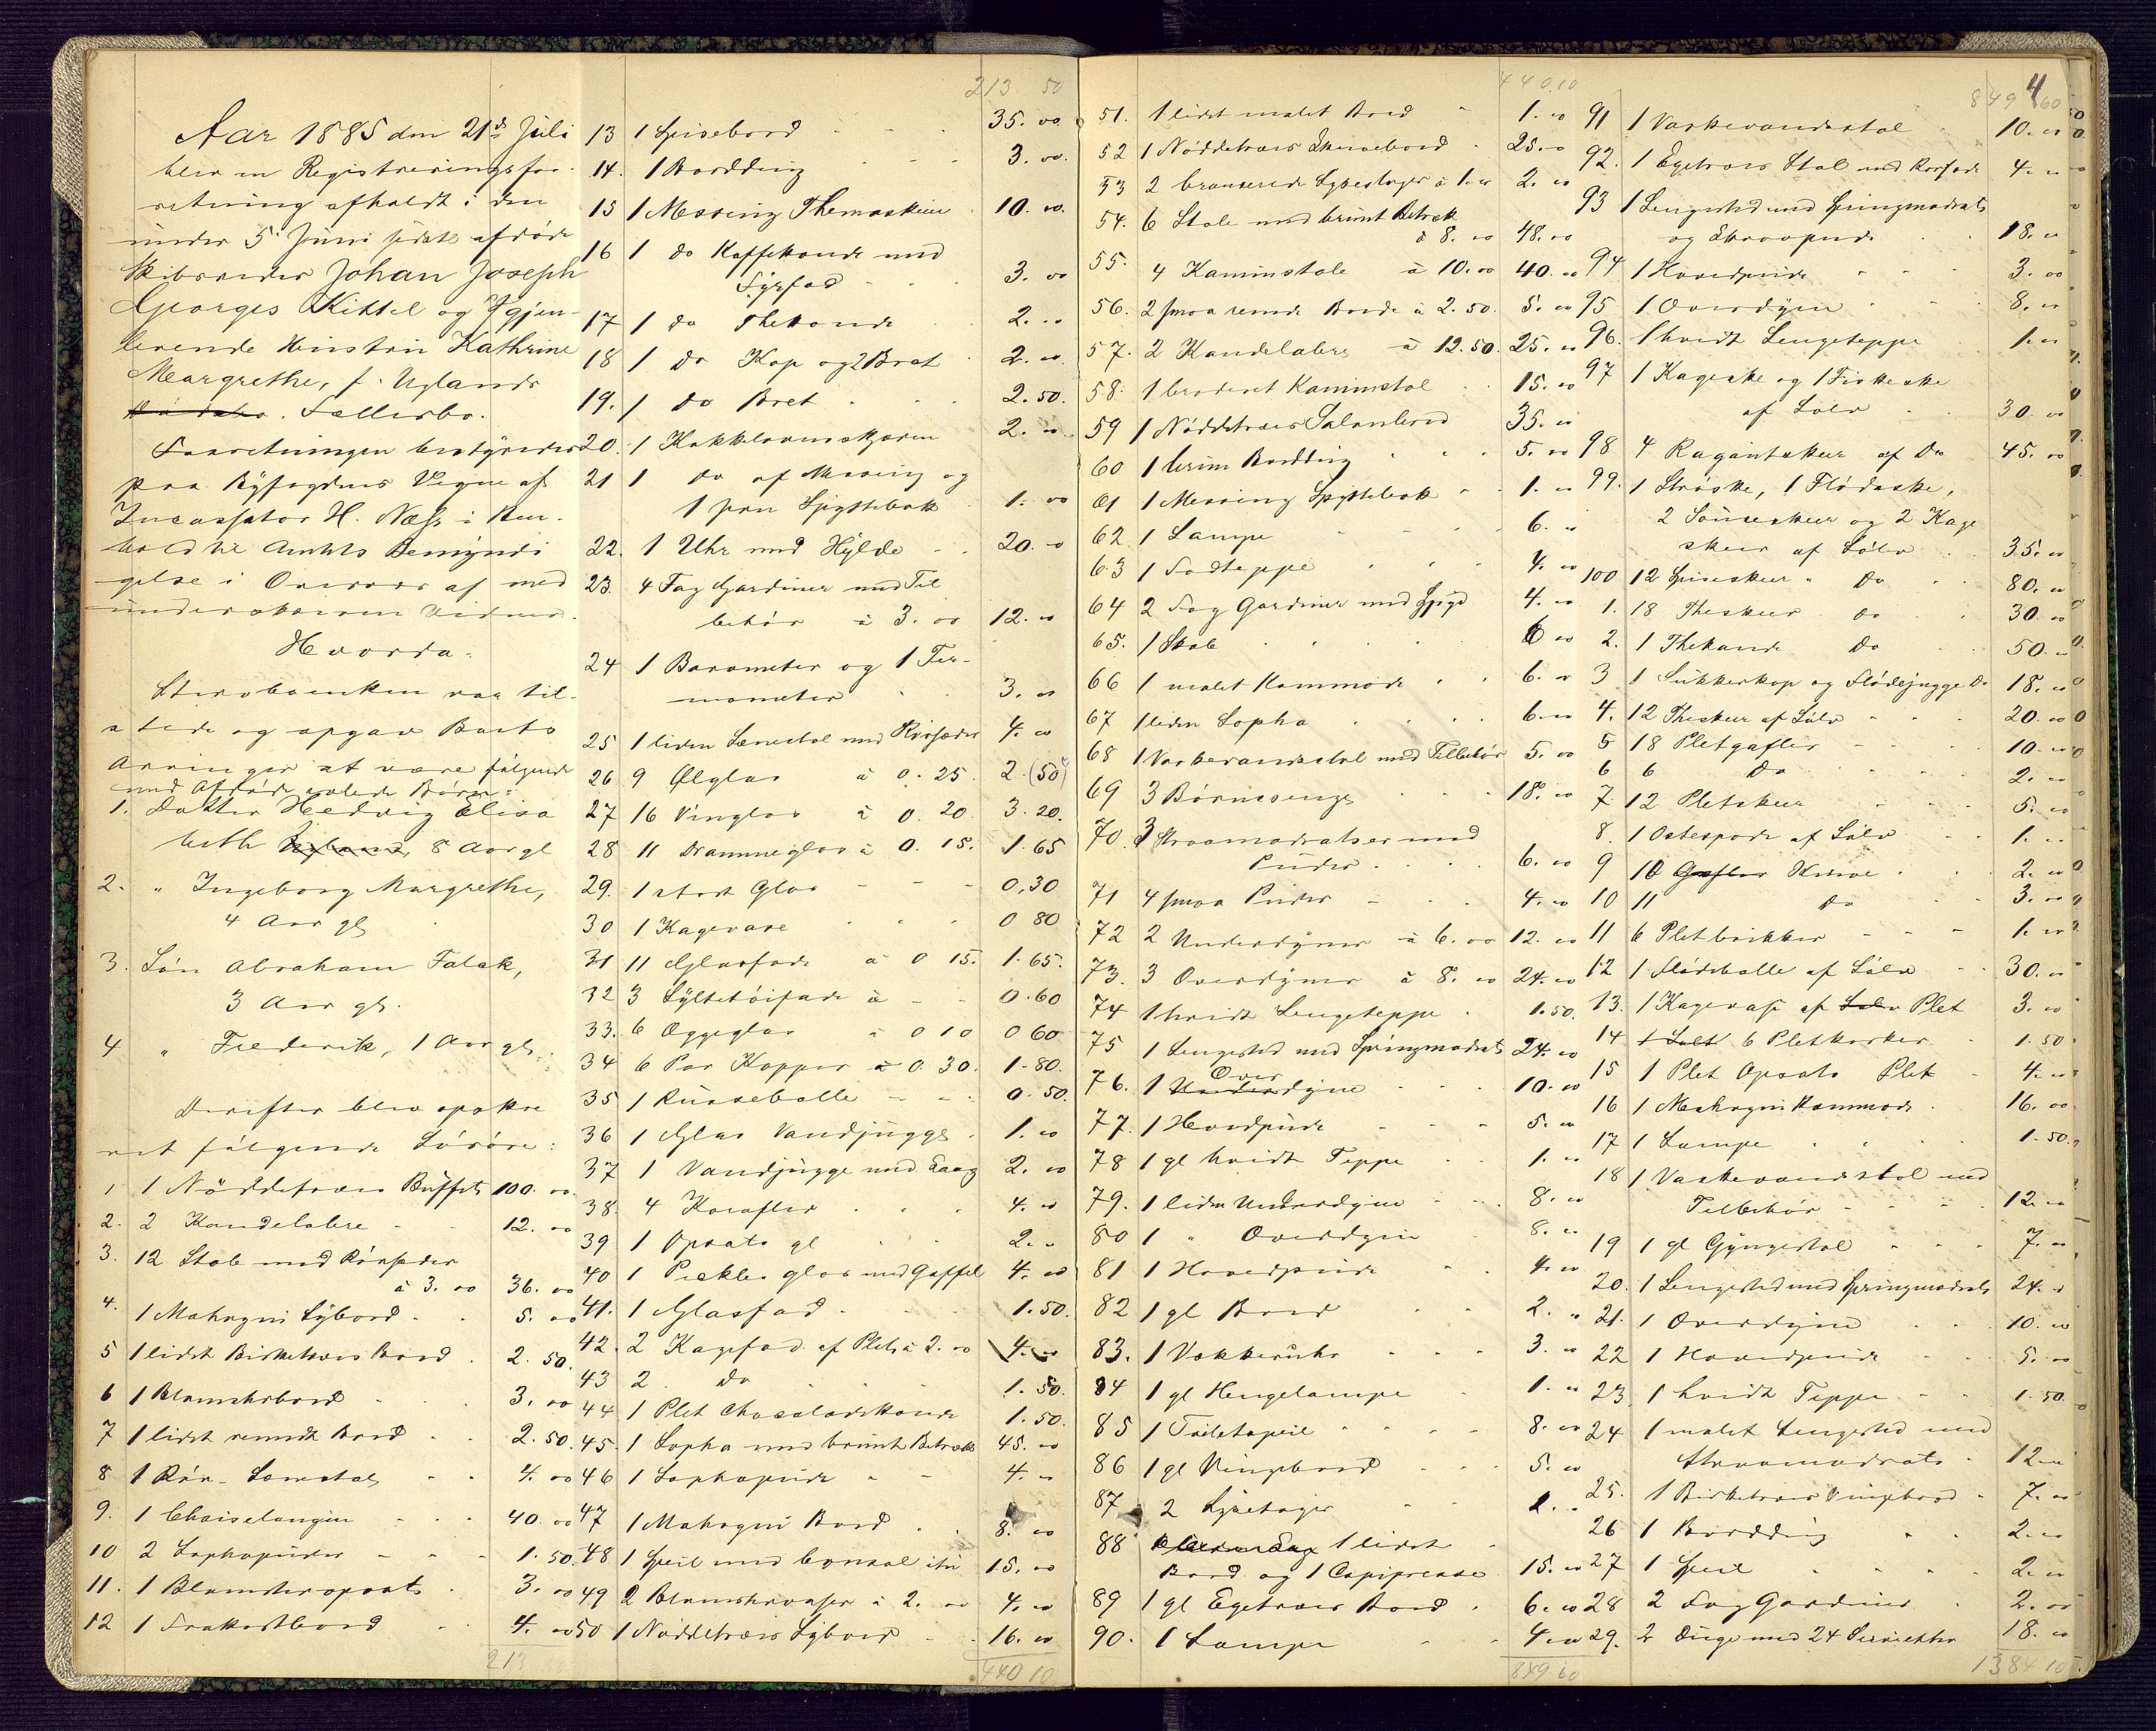 Aar 1885 den 21de Juli
blev en Registreringsfor-
retning afholdt i den
under 5 Juni sidstl. afdøde
Skibsreder Johan Joseph
Georges Kittel og Igjen-
levende Hustru Kathrine
Margrethe, f. Uglands
Fællesbo.
Forretningen bestyredes
paa Byfogdens Vegne af
Incassator H. Næss i Hen-
hold til Amtets Bemyndi
gelse i Overvær af med
underskrevne Vidner.
Hvorda:
Sterboenken var til-
stede og opgav Boets
Arvinger at være følgende
med Afdøde avlede Børn:
1. Datter Hedvig Elisa
beth 8 Aar gl
2. " Ingeborg Margrethe,
4 Aar gl
3. Søn Abraham Falck,
3 Aar gl.
4 " Frederik, 1 Aar gl.
Derefter blev opskre
vet følgende Løsøre:
1 1 Nøddetræes Buffet 100. 00
2. 2 Kandelabre 12. 00
3. 12 Stole med Rørsæder
à 3. 00 36. 00
4. 1 Mahogni Sybord 5. 00
5 1 lidet Birketræes Bord 2. 50.
6 1 Blomsterbord 3. 00
7 1 lidet rundt Bord 2. 50.
8 1 Rør-Lænestol 4. 00
9. 1 Chaiselongue 40. 00
10 2 Sophapuder 1. 50.
11. 1 Blomsteropsats 3. 00
12 1 Frokostbord 4. 00
213
213. 50
13 1 Spisebord 35. 00
14. 1 Bordding 3. 00.
15 1 Messing Themaskine 10. 00.
16 1 do Kaffekande med
Fyrfad 3. 00
17 1 do Thekande 2. 00
18 1 do Kop og 2 Bret 2. 00
19. 1 do Bret 2. 50.
20. 1 Kakkelovnsskjærm 2. 00
21 1 do af Messing og
1 pen Spyttebak 1. 00
22. 1 Uhr med Hylde 20. 00
23. 4 Fag Gardiner med Til
behør à 3. 00 12. 00
24 1 Barometer og 1 Ter-
mometer 3. 00
25 1 liden Lænestol med Rørsæder 4. 00
26 9 Ølglas à 0. 25. 2. (50)
27 16 Vinglas à 0. 20. 3. 20.
28 11 Drammeglas à 0. 15. 1. 65
29. 1 stort Glas 0,30
30 1 Kagevase 0 80
31 11 Glasfade à 0 15. 1. 65.
32 3 Syltetøifade à 0. 60
33. 6 Æggeglas à 0 10 0 60
34 6 Par Kopper à 0. 30. 1. 80.
35 1 Punsebolle 0. 50.
36 1 Glas Vandjugge 1. 00
37 1 Vandjugge med Laag 2. 00
38. 4 Karafler 4. 00
39 1 Opsats gl 2. -
40 1 Pickles glas med Gaffel 4. 00
41. 1 Glasfad 1. 50.
42. 2 Kagefad af Plet à 2. 00 4. 00
43 2 Do 1. 50.
44 1 Plet Chocoladekande 1. 50.
45. 1 Sopha med brunt Betræk 45. 00
46 1 Sophapude 4. -
47 1 Mahogni Bord 8. 00
48 1 Speil med Consol itu 15. 00
49 2 Blomstervaser à 2. 00 4. 00
50 1 Nøddetræes Sybord 16. 00
440 10
440.10
51. 1 lidet malet Bord 1. 00
52 1 Nøddetræes Skrivebord 25. 00
53 2 broncerede Lysestager à 1. 00 2. 00
54. 6 Stole med brunt Betræk
à 8. 00 48. 00
55. 4 Kaminstole à 10. 00 40. 00
56. 2 smaa runde Borde à 2. 50. 5. 00
57. 2 Kandelabre à 12. 50. 25. 00
58. 1 broderet Kaminstol 15. 00
59 1 Nøddetræes Salonbord 35. 00
60 1 brun Bordding 5. 00
61 1 Messing Spyttebak 1. 00
62 1 Lampe 6. 00
63 1 Fodteppe 4. 00
64 2 Fag Gardiner med Spyd 4. 00
65. 1 Skab 6 00
66 1 malet Kommode 6. 00
67 1 liden Sopha 6. 00
68 1 Vaskevandsstol med Tilbehør 5. 00
69 3 Børnesenge 18. 00
70. 3 Straamadratser med
Puder 6. 00
71 4 smaa Puder 4. 00
72 2 Underdyner à 6. 00 12. 00
73. 3 Overdyner à 8. 00 24. 00
74 1 hvidt Sengeteppe 1. 50.
75 1 Sengested med Springmadrats 24. 00
76. 1 Overdyne 10. 00
77. 1 Hovedpude 5. 00
78 1 gl hvidt Teppe 1. 00
79. 1 liden Underdyne 8. 00
80 1 " Overdyne 8. 00
81 1 Hovedpude 4. 00
82 1 gl Bord 2. 00
83. 1 Vækkeruhr 3. 00
84 1 gl Hengelampe 1. 00
85 1 Toiletspeil 8. 00
86 1 gl Vingebord 5. 00
87 2 Lysestager 1. 00
88 1 lidet
Bord og 1 Copipresse 15. 00
89 1 gl Egetræes Bord 6. 00
90. 1 Lampe 4. 00
849 60
4
849 60
91 1 Vaskevandsstol 10. 00
92. 1 Egetræes Stol med Rørsæde 4. 00
93 1 Sengested med Springmadrats
og Skraapude 18. 00
94 1 Hovedpude 3. 00
95 1 Overdyne 8. 00
96. 1 hvidt Sengeteppe 1. 00
97 1 Kageske og 1 Fiskeske
af Sølv 30. 00
98 4 Ragoutskeer af Do 45. 00
99. 1 Strøske, 1 Flødeske,
2 Sauseskeer og 2 Kage
skeer af Sølv 35. 00
100 12 Spiseskeer " Do 80. 00
1. 18 Theskeer Do 30. 00
2. 1 Thekande Do 50. 00
3 1 Sukkerkop og Flødejugge Do 18. 00
4. 12 Theskeer af Sølv 20. 00
5 18 Pletgafler 10. 00
6 6 Do 2. 00
7. 12 Pletskeer 5. 00
8. 1 Ostespade af Sølv 1. 00
9 10 Gafler Knive 2. 00
10 11 Do 3. 00
11 6 Pletbrikker 1. 00
12 1 Flødebolle af Sølv 30. 00
13. 1 Kagevase af Sølv Plet 3. 00
14 6 Pletkorker 1. 50
15 1 Plet Opsats Plet 4. 00
16 1 Mahogni Kommode 16. 00
17 1 Lampe 1. 50.
18 1 Vaskevandsstol med
Tilbehør 12. 00
19 1 gl Gyngestol 7. 00
20. 1 Sengested med Springmadrats 24. 00
21. 1 Overdyne 10. 00
22 1 Hovedpude 5. 00
23. 1 hvidt Teppe 1. 50.
24 1 malet Sengested med
Straamadrats 12. 00
25. 1 Birketræes Vingebord 7. 00
26 1 Bordding 2. 00
27 1 Speil 2. 00
28 2 Fag Gardiner 2. 00
29. 2 Duge med 24 Servietter 18. 00
1384 10